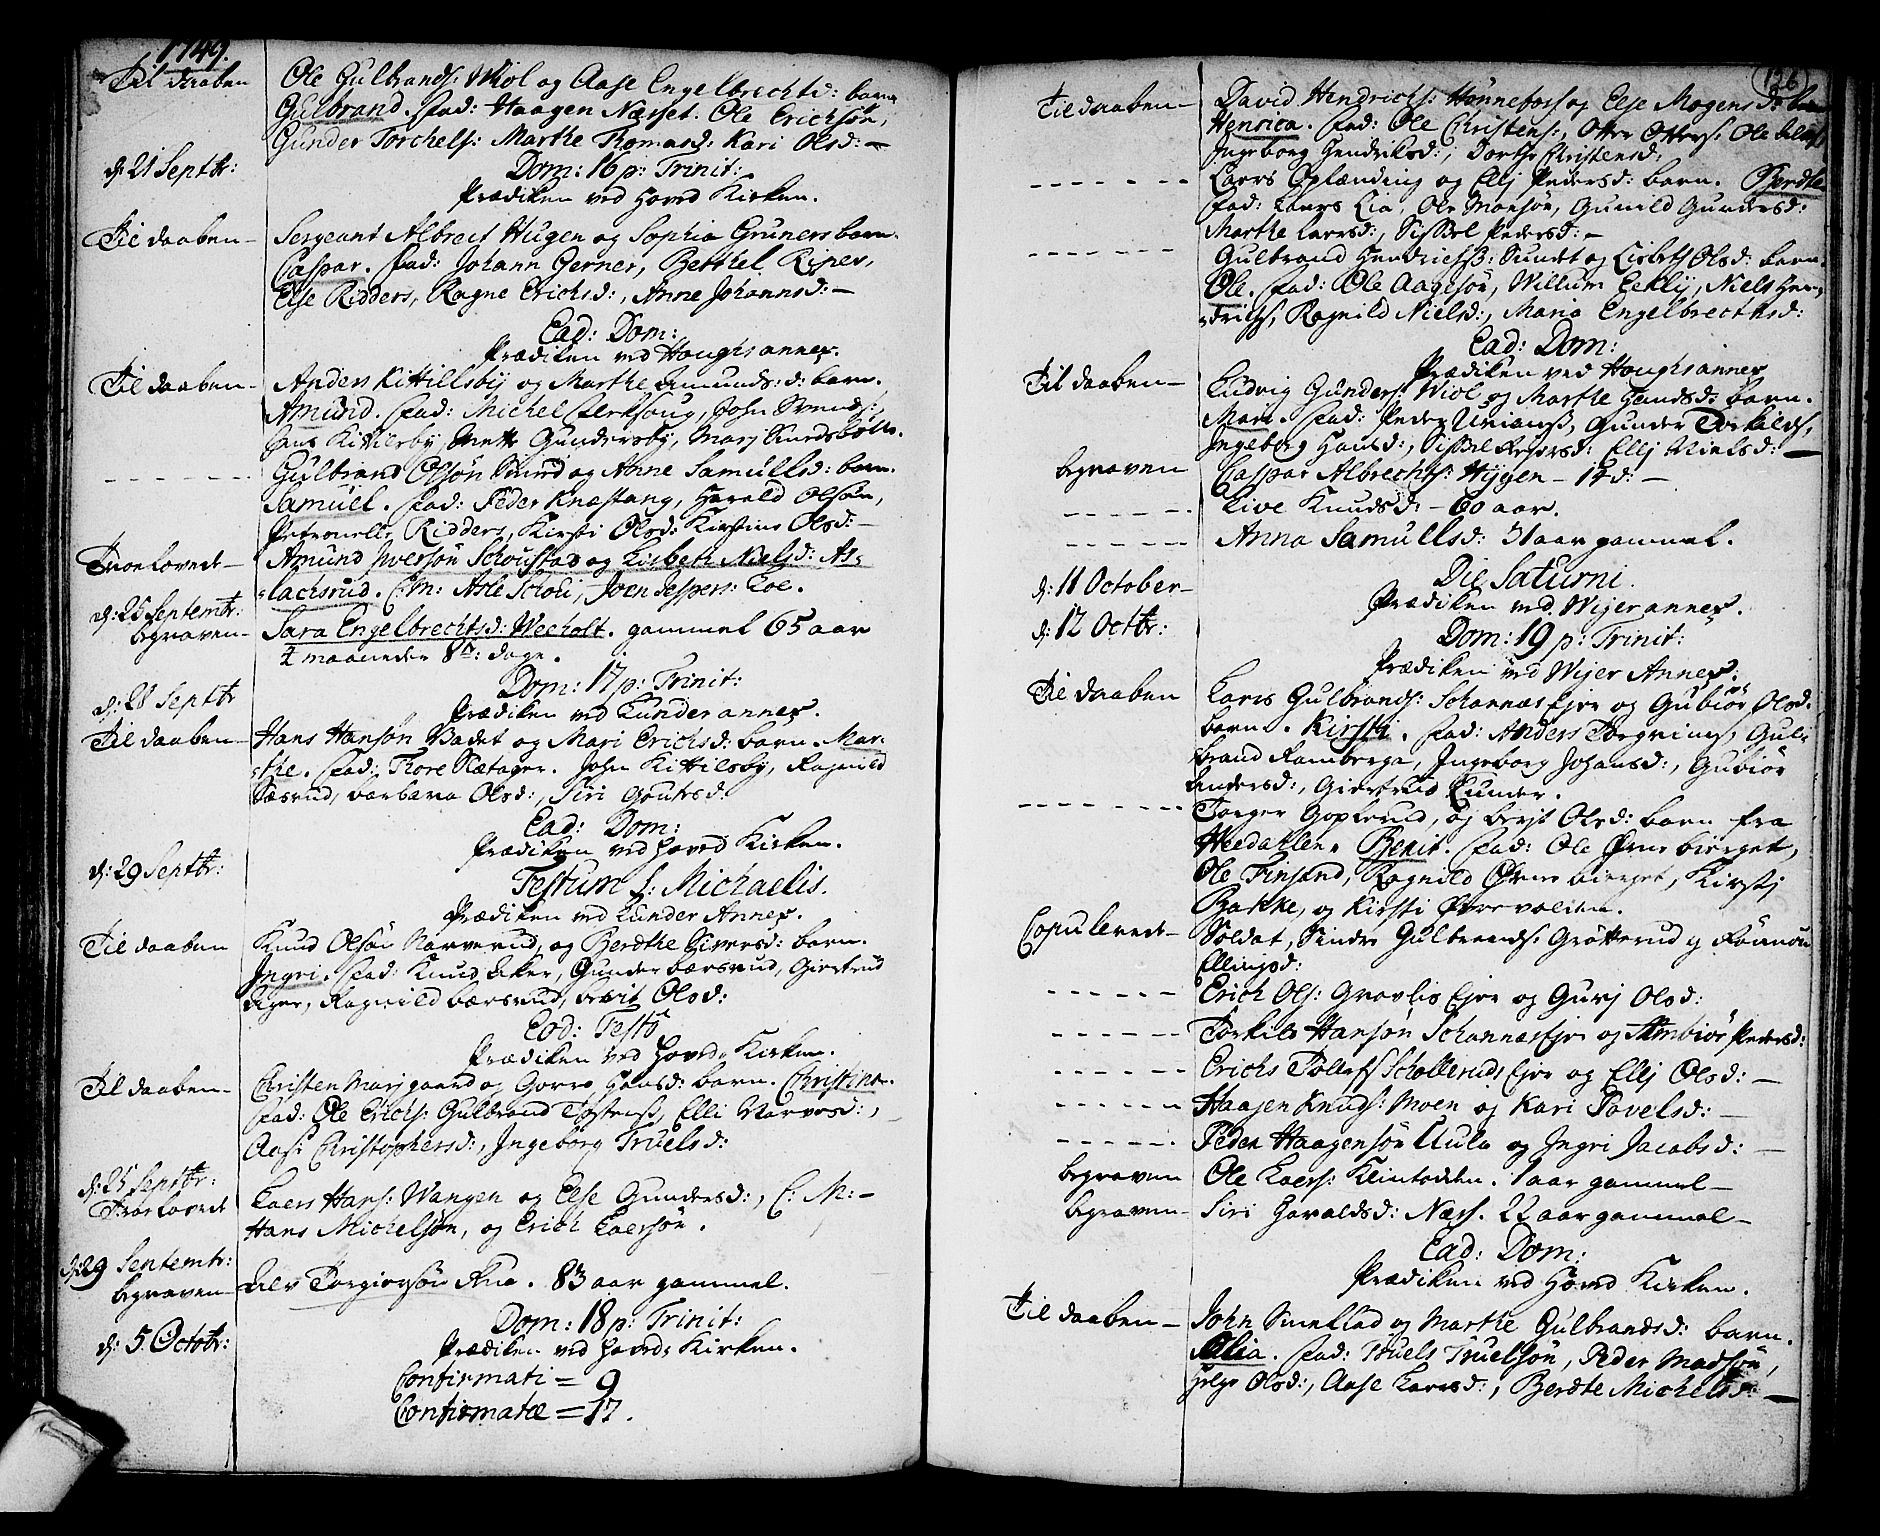 1749.
Til daaben
Ole Gulbrands: Wiol og Aase Engelbrechtsd: barn
Gulbrand. Fad: Haagen Næsset. Ole Erichsøn,
Gunder Torchels: Marthe Thomasd: Kari Olsd: —
d: 21 Septbr:
Dom: 16 p: Trinit:
Prædiken ved Hoved Kirken.
Til daaben —
Sergeant Albrect Hugen og Sophia Gruners barn.
Caspar. Fad: Johann Gerner, Berthel Riper,
Else Ridders, Ragne Erichsd:, Anne Johannsd: —
Ead: Dom:
Prædiken ved Houghs annex.
Til daaben —
Anders Kittillsbÿ og Marthe Amunds:d: barn.
Amund. Fad: Michel, John Svends:
Kittilsby, Mette Gundersby, Marj
Gulbrand Olssøn og Anne Samullsd: barn.
Samuel. Fad: Peder Knæstang, Harald Olsøn,
Petronelle Ridders, Kirsti Olsd: Kirstine Olsd: —
Troelovede —
Amund Iversøn Schoustad og Lisbeth Nielsd: As-
lachsrud. C: M: Asle Scholi, Joen Jespers: Loe.
d: 25 Septembr:
begraven —
Sara Engelbrechtsd: Wecholt. gammel 65 aar
4 maaneder 8 dage.
Dom: 17 p: Trinit:
d: 28 Septbr
Prædiken ved Lunder annex.
Til daaben —
Hans Hansøn Badet og Mari Erichsd: barn. Mar-
the. Fad: Thore Sætager. John Kittilsby, Ragnild
Sæsrud, barbara Olsd:, Siri Goutesd:
Ead: Dom:
Prædiken ved Hoved Kirken.
d: 29 Septbr:
Festum S: Michaelis.
Prædiken ved Lunder Annex.
Til daaben
Knud Olsøn Narverud, og Berthe Siversd: barn.
Ingri. Fad: Knud Eker, Gunder bærsrud, Giertrud
Ager, Ragnild bærsrud, berit Olsd:
Eod: Festo
Prædiken ved Hoved Kirken.
Til daaben —
Christen Marigaard og Gorro Hansd: barn. Christine.
Fad: Ole Erichs: Gulbrand Tostens, Elli Narvesd:,
Aase Christophersd:, Ingebörg Truelsd:
d: 25 Septbr:
Troelovede
Laers Hans: Wangen og Else Gundersd:, C: M: —
Hans Michelsøn, og Erich Laersøn.
d: 29 Septembr:
begraven —
Torgiersøn. 83 aar gammel.
Dom: 18 p: Trinit:
d: 5 Octobr:
Prædiken ved Hoved Kirken.
Confirmati = 9
Confirmatæ = 17.
126
Til daaben —
David Hendrichs: Hønnefos og Else Mogensd: barn
Henrica. Fad: Ole Christens:, Otter Otters: Ole
Ingeborg Hendriksd:, Dorthe Christensd:
Laers Oplænding og Elli Pedersd: barn. Berthe
Fad: Laers Lia, Ole Monsøn, Gunild Gundersd:
Marthe Laersd:, Sissel Pedersd: —
Gulbrand Hendrichs: Sundet og Lisbeth Olsd: barn.
Ole. Fad: Ole Aagesøn, Willum Eeklÿ, Niels Hen-
drichs, Ragnild Nielsd:, Maria Engelbrechtsd:
Ead: Dom:
Prædiken ved Houghs annex
Til daaben —
Ludvig Gunders: Wiol og Marthe Hansd: barn.
Mari. Fad: Peder, Gunder Torkilds,
Ingeborg Hansd:, Sissel d: Ellj Nielsd: —
begraven
Caspar Albrechts: Hÿgen — 14 d: —
Live Knudsd: — 60 aar.
Anna Samullsd: 31 aar gammel.
d: 11 October —
Die Saturni.
Prædiken ved Wijer annex.
d: 12 Octbr:
Dom: 19 p: Trinit:
Prædiken ved Wijer Annex.
Til daaben
Laers Gulbrands: Schannes Ejer og Gubiør Olsd.
barn. Kirsti. Fad: Anders Torgrims, Gul-
brand Ramberga, Ingeborg Johansd:, Gubiör
Andersd:, Giertrud Lunder.
Torger Goplerud, og berit Olsd: barn fra
Heedahlen. Berit. Fad: Ole Ørnebierget,
Ole Finsand, Ragnild Ørnebierget, Kirstj
Bakke, og Kirsti Øvrevolien.
Copulerede —
Soldat, Sindre Gulbrands: Grötterud og Rönnou
Ellingsd:
Erich Ols: Gravlis Ejer og Gurj Olsd:
Torkild Hansøn Schannes Ejer og Ambiör Pedersd:
Erich Tollefs Schollerud Ejer og Ellj Olsd: —
Haagen Knuds: Moen og Kari Povelsd: —
Peder Haagensøn og Ingri Jacobsd: —
begraven
Ole Laers: Kleintodden. 1 aar gammel —
begraven —
Siri Haraldsd: Næss. 22 aar gammel —
Ead: Dom:
Prædiken ved Hoved Kirken.
Til daaben —
John og Marthe Gulbrandsd: barn.
Fad: Truels Truelsøn, Peder Madsøn,
Helge Olsd:, Aase Laersd:, Berdte Michelsd: —